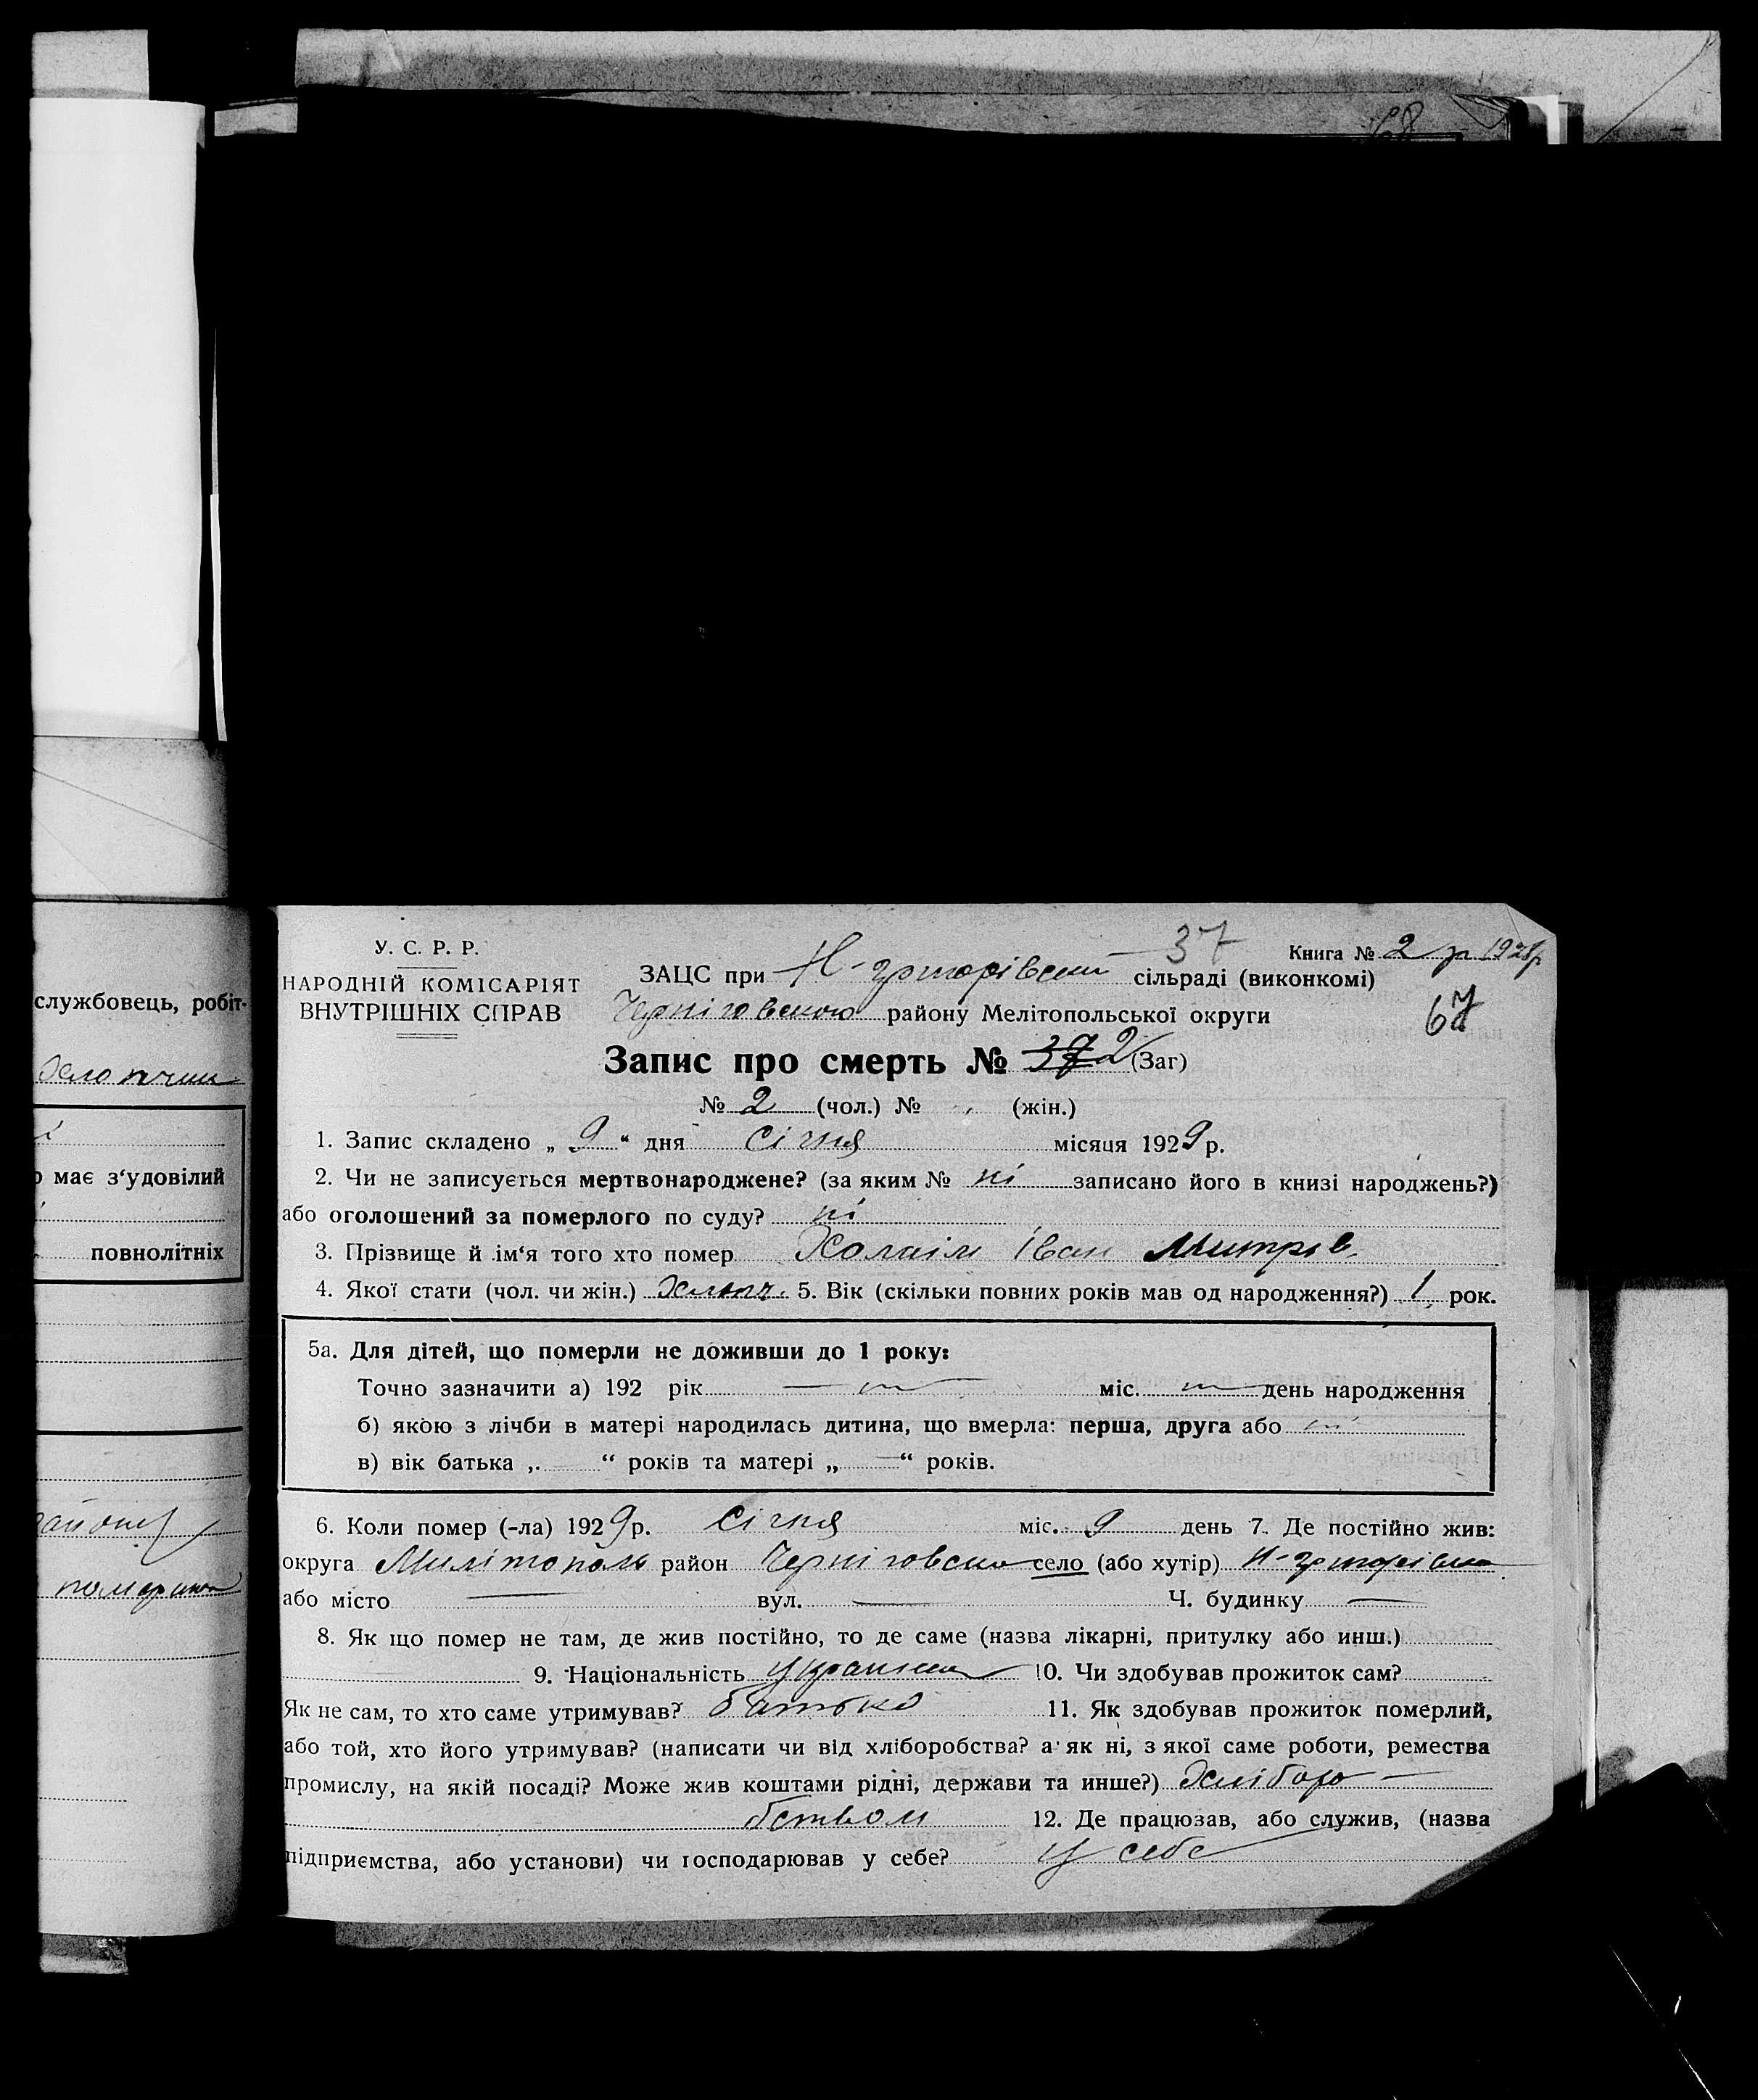 68
службовець, робіт-
має з‘удовілий
повнолітніх
37
Книга № 2
У. С. Р. Р.
НАРОДНІЙ КОМІСАРІЯТ
ВНУТРІШНІХ СПРАВ
ЗАЦС при Н-григорівскій сільраді (виконкомі)
67
Черніговського району Мелітопольської округи
Запис про смерть № 37 2 (Заг)
№ 2 (чол.) № (жін.)
1. Запис складено „ 9 “ дня січня місяця 1929 р.
2. Чи не записується мертвонароджене? (за яким № ні записано його в книзі народжень?)
або оголошений за померлого по суду? ні
3. Прізвище й ім‘я того хто помер Іван Митров.
4. Якої стати (чол. чи жін.) Хлопч. 5. Вік (скільки повних років мав од народження?) 1 рок.
5а. Для дітей, що померли не доживши до 1 року:
Точно зазначити а) 192 рік — міс. — день народження
б) якою з лічби в матері народилась дитина, що вмерла: перша, друга або
в) вік батька „ — “ років та матері „ — “ років.
6. Коли помер (-ла) 1929 р. січня міс. 9 день 7. Де постійно жив:
округа Милітополь район Черніговски село (або хутір) Н-григорівка
або місто — вул. — Ч. будинку —
8. Як що помер не там, де жив постійно, то де саме (назва лікарні, притулку або инш.)
9. Національність украинец 10. Чи здобував прожиток сам?
Як не сам, то хто саме утримував? батько 11. Як здобував прожиток померлий,
або той, хто його утримував? (написати чи від хліборобства? а як ні, з якої саме роботи, ремества
промислу, на якій посаді? Може жив коштами рідні, держави та инше?) Хліборо-
бством 12. Де працював, або служив, (назва
підприємства, або установи) чи господарював у себе? У себе